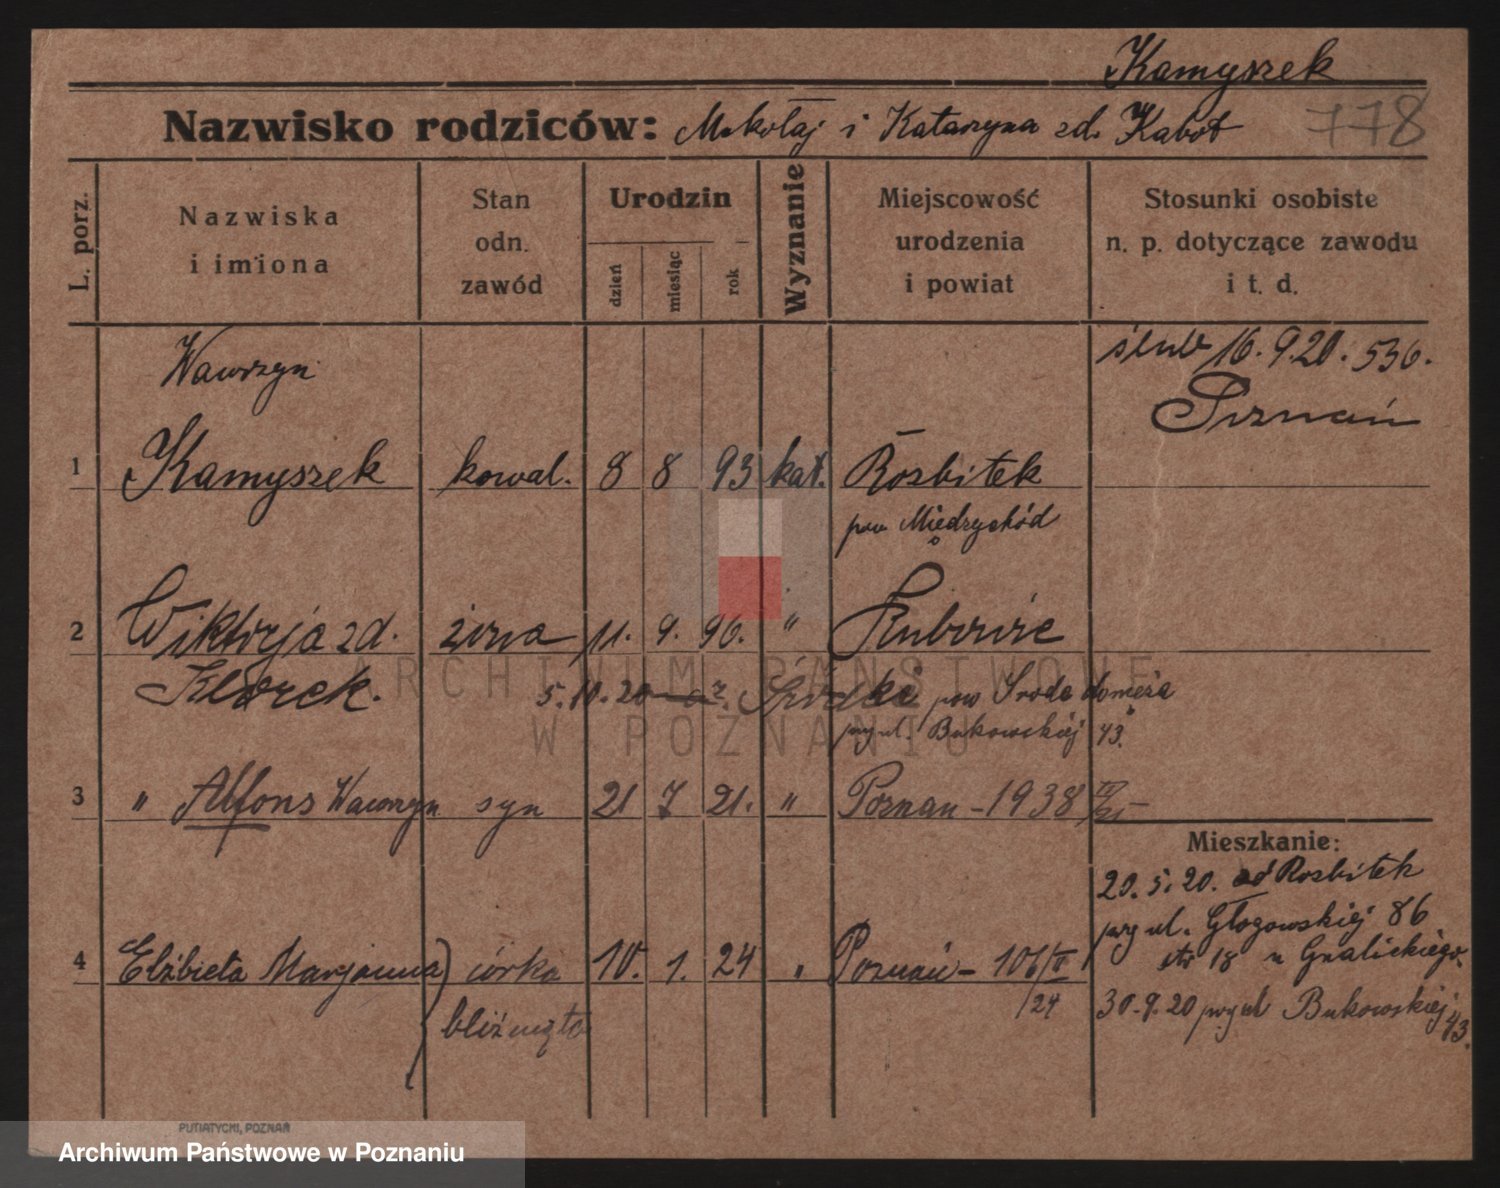 Kamyszek
Nazwisko rodziców: Mikołaj i Katarzyna zd. Kabot 778
L. porz.
Nazwiska i imiona
Stan odn. zawód
Urodzin
dzień
miesiąc
rok
Wyznanie
Miejscowość urodzenia i powiat
Stosunki osobiste n. p. dotyczące zawodu i t. d.
Wawrzyn
ślub 16. 9. 20. 536.
Poznań
1 Kamyszek kowal. 8 8 93 kat. Rozbitek
pow Międzychód
2 Wiktorja zd. żona 11. 9. 96. "
5.10.20 pow Środa
przy ul. Bukowskiej 43.
3 " Alfons Wawrzyn syn 21 7 21. " Poznań - 1938
Mieszkanie:
20. 5. 20. od Rozbitek
przy ul. Głogowskiej 86
4 Elżbieta Marjanna córka 10. 1. 24 " Poznań - 106/II
/24
bliźnięta
30.9.20 przy ul Bukowskiej 43.
PUTIATYCKI, POZNAŃ
ARCHIWUM PAŃSTWOWE
W POZNANIU
Archiwum Państwowe w Poznaniu